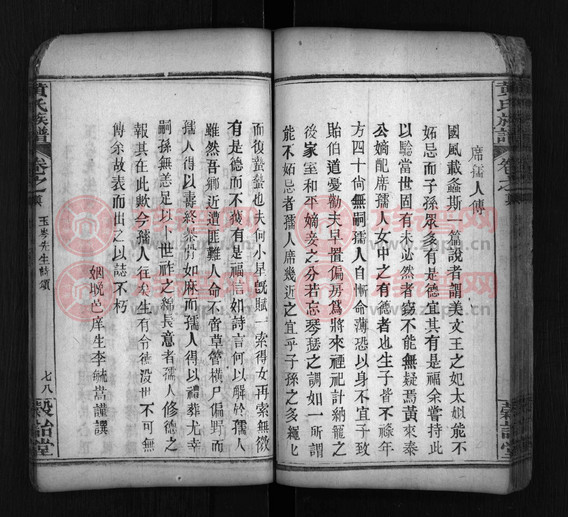 席孺人傳
國風載螽斯一篇說者謂美文王之妃太姒能不
妬忌而子孫眾多有是德宜其有是福余嘗持此
以驗當世固有未必然者竊不能無疑焉黃來泰
公嫡配席孺人女中之有德者也生子皆不祿年
方四十尙無嗣孺人自慚命薄恐以身不宜子致
貽伯道憂勸夫早置偏房爲將來禋祀計納龍之
後家室和平嫡妾之分若忘琴瑟之調如一所謂
能不妬忌者孺人席幾近之宜乎子孫之多繩
而後螽螽也夫何小星旣賦一索得女再索無徵
有是德而不獲有是福信如詩言何以解於孺人
雖然吾鄉近遭匪難人命不啻草管橫尸偏野而
孺人得以壽終衆
如麻而孺人得以禮葬尤幸
嗣孫無恙足以
一世祚之
長意者孺人修德之
報其在此歟今孺人往矣生有令德没世不可無
傳余故表而出之以誌不朽
姻晚邑庠生李毓
謹撰
黃氏族譜
卷之
玉岑先生詩頌
七八
穀詒堂
黃氏族譜
卷之
穀詒堂